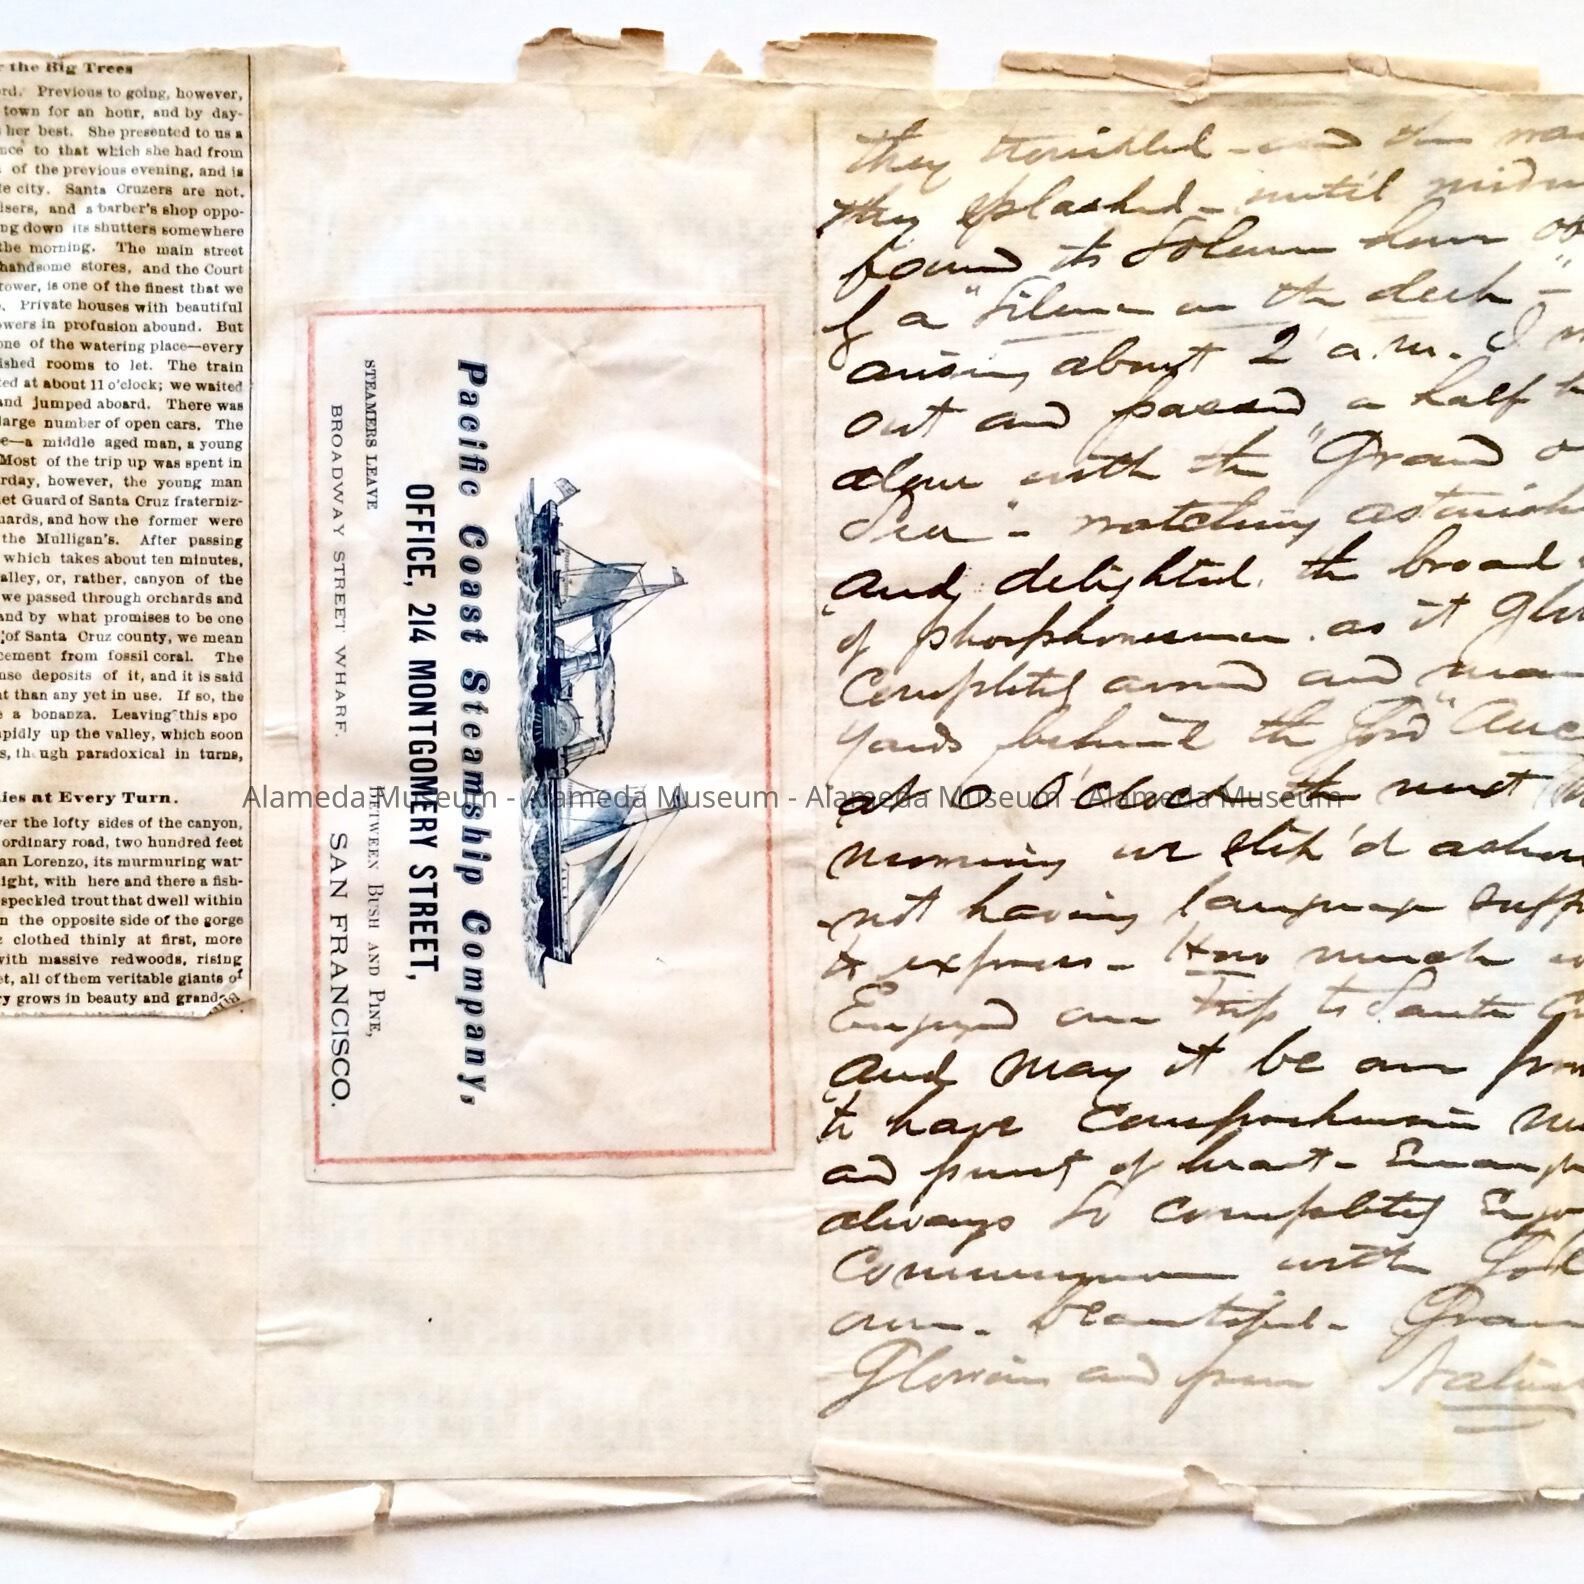 r the Big Trees
ord. Previous to going, however,
town for an hour, and by day-
her best. She presented to us a
nce to that which she had from
of the previous evening, and is
te city. Santa Cruzers are not,
isers, and a barber's shop oppo-
ng down its shutters somewhere
the morning. The main street
handsome stores, and the Court
tower, is one of the finest that we
. Private houses with beautiful
owers in profusion abound. But
one of the watering place—every
ished rooms to let. The train
ted at about 11 o'clock; we waited
and jumped aboard. There was
large number of open cars. The
e—a middle aged man, a young
Most of the trip up was spent in
rday, however, the young man
et Guard of Santa Cruz fraterniz-
uards, and how the former were
the Mulligan's. After passing
which takes about ten minutes,
alley, or, rather, canyon of the
we passed through orchards and
and by what promises to be one
of Santa Cruz county, we mean
cement from fossil coral. The
nse deposits of it, and it is said
t than any yet in use. If so, the
e a bonanza. Leaving this spo
apidly up the valley, which soon
s, th ugh paradoxical in turns,
ies at Every Turn.
ver the lofty sides of the canyon,
ordinary road, two hundred feet
an Lorenzo, its murmuring wat-
ight, with here and there a fish-
speckled trout that dwell within
n the opposite side of the gorge
clothed thinly at first, more
with massive redwoods, rising
et, all of them veritable giants of
ry grows in beauty and grand
Pacific Coast Steamship Company,
OFFICE, 214 MONTGOMERY STREET,
STEAMERS LEAVE BETWEEN BUSH AND PINE,
BROADWAY STREET WHARF. SAN FRANCISCO.
they and the
they splashed - until midn
found its Solemn hour
of a "Silence on the deck -"
arising about 2 a.m. I
out and passed a half h
alone with the "Grand o
Sea" - watching astonish
and delighted, the broad
of phosphoresence. as it
Completely around and man
yards behind the Good "Anc
at 8 O'clock the next
morning we step'd ashore
not having language suffi
to express - How much w
Enjoyed our Trip to Santa Cr
And May it be our
to have Companions
and of heart -
always So Completely Enjo
Communion with God
own - beautiful - Gran
Glorious and pure Natur
Alameda Museum - Alameda Museum - Alameda Museum - Alameda Museum